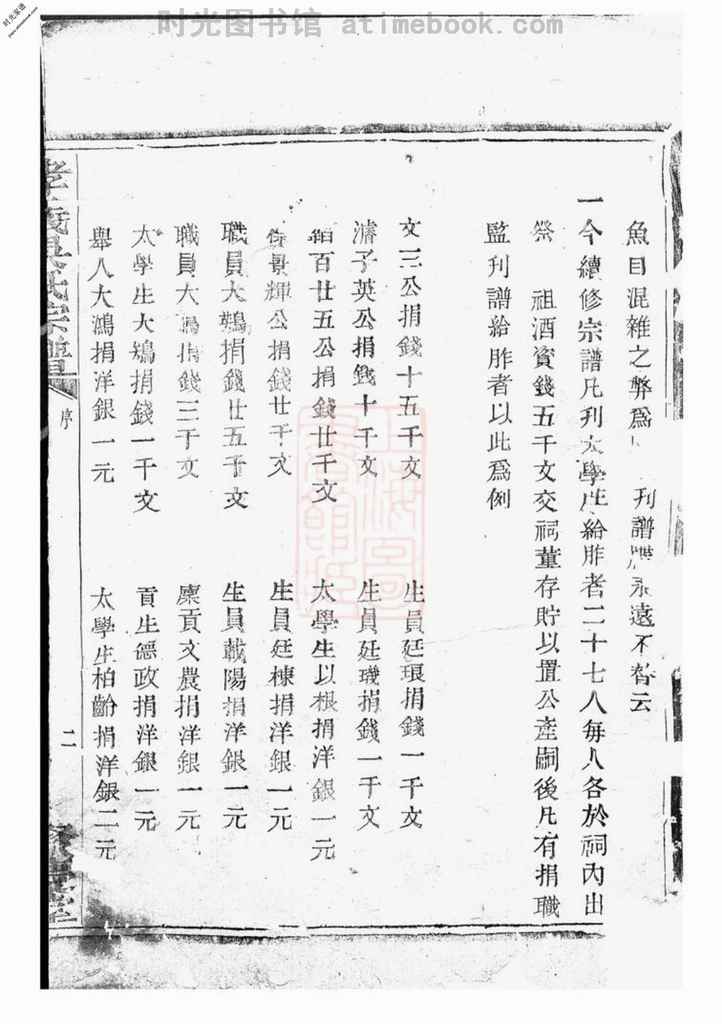 时光图书馆 atimebook.com
魚目混雜之弊爲 刊譜 永遠不替云
一今續修宗譜凡刋太學生給胙者二十七人每人各於祠內出
祭 祖酒資錢五千文交祠董存貯以置公產嗣後凡有捐職
監刋譜給胙者以此爲例
文三公捐錢十五千文 生員廷琅捐錢一千文
濬子英公捐錢十千文 生員廷璣捐錢一千文
百廿五公捐錢廿千文 太學生以根捐洋銀一元
景輝公捐錢廿千文 生員廷棟捐洋銀一元
職員大鶚捐錢廿五千文 生員載陽捐洋銀一元
職員大 捐錢三千文 廩貢文農捐洋銀一元
太學生大鵷捐錢一千文 貢生德政捐洋銀一元
舉人大鴻捐洋銀一元 太學生柏齡捐洋銀二元
孝義吳氏宗譜 序 二